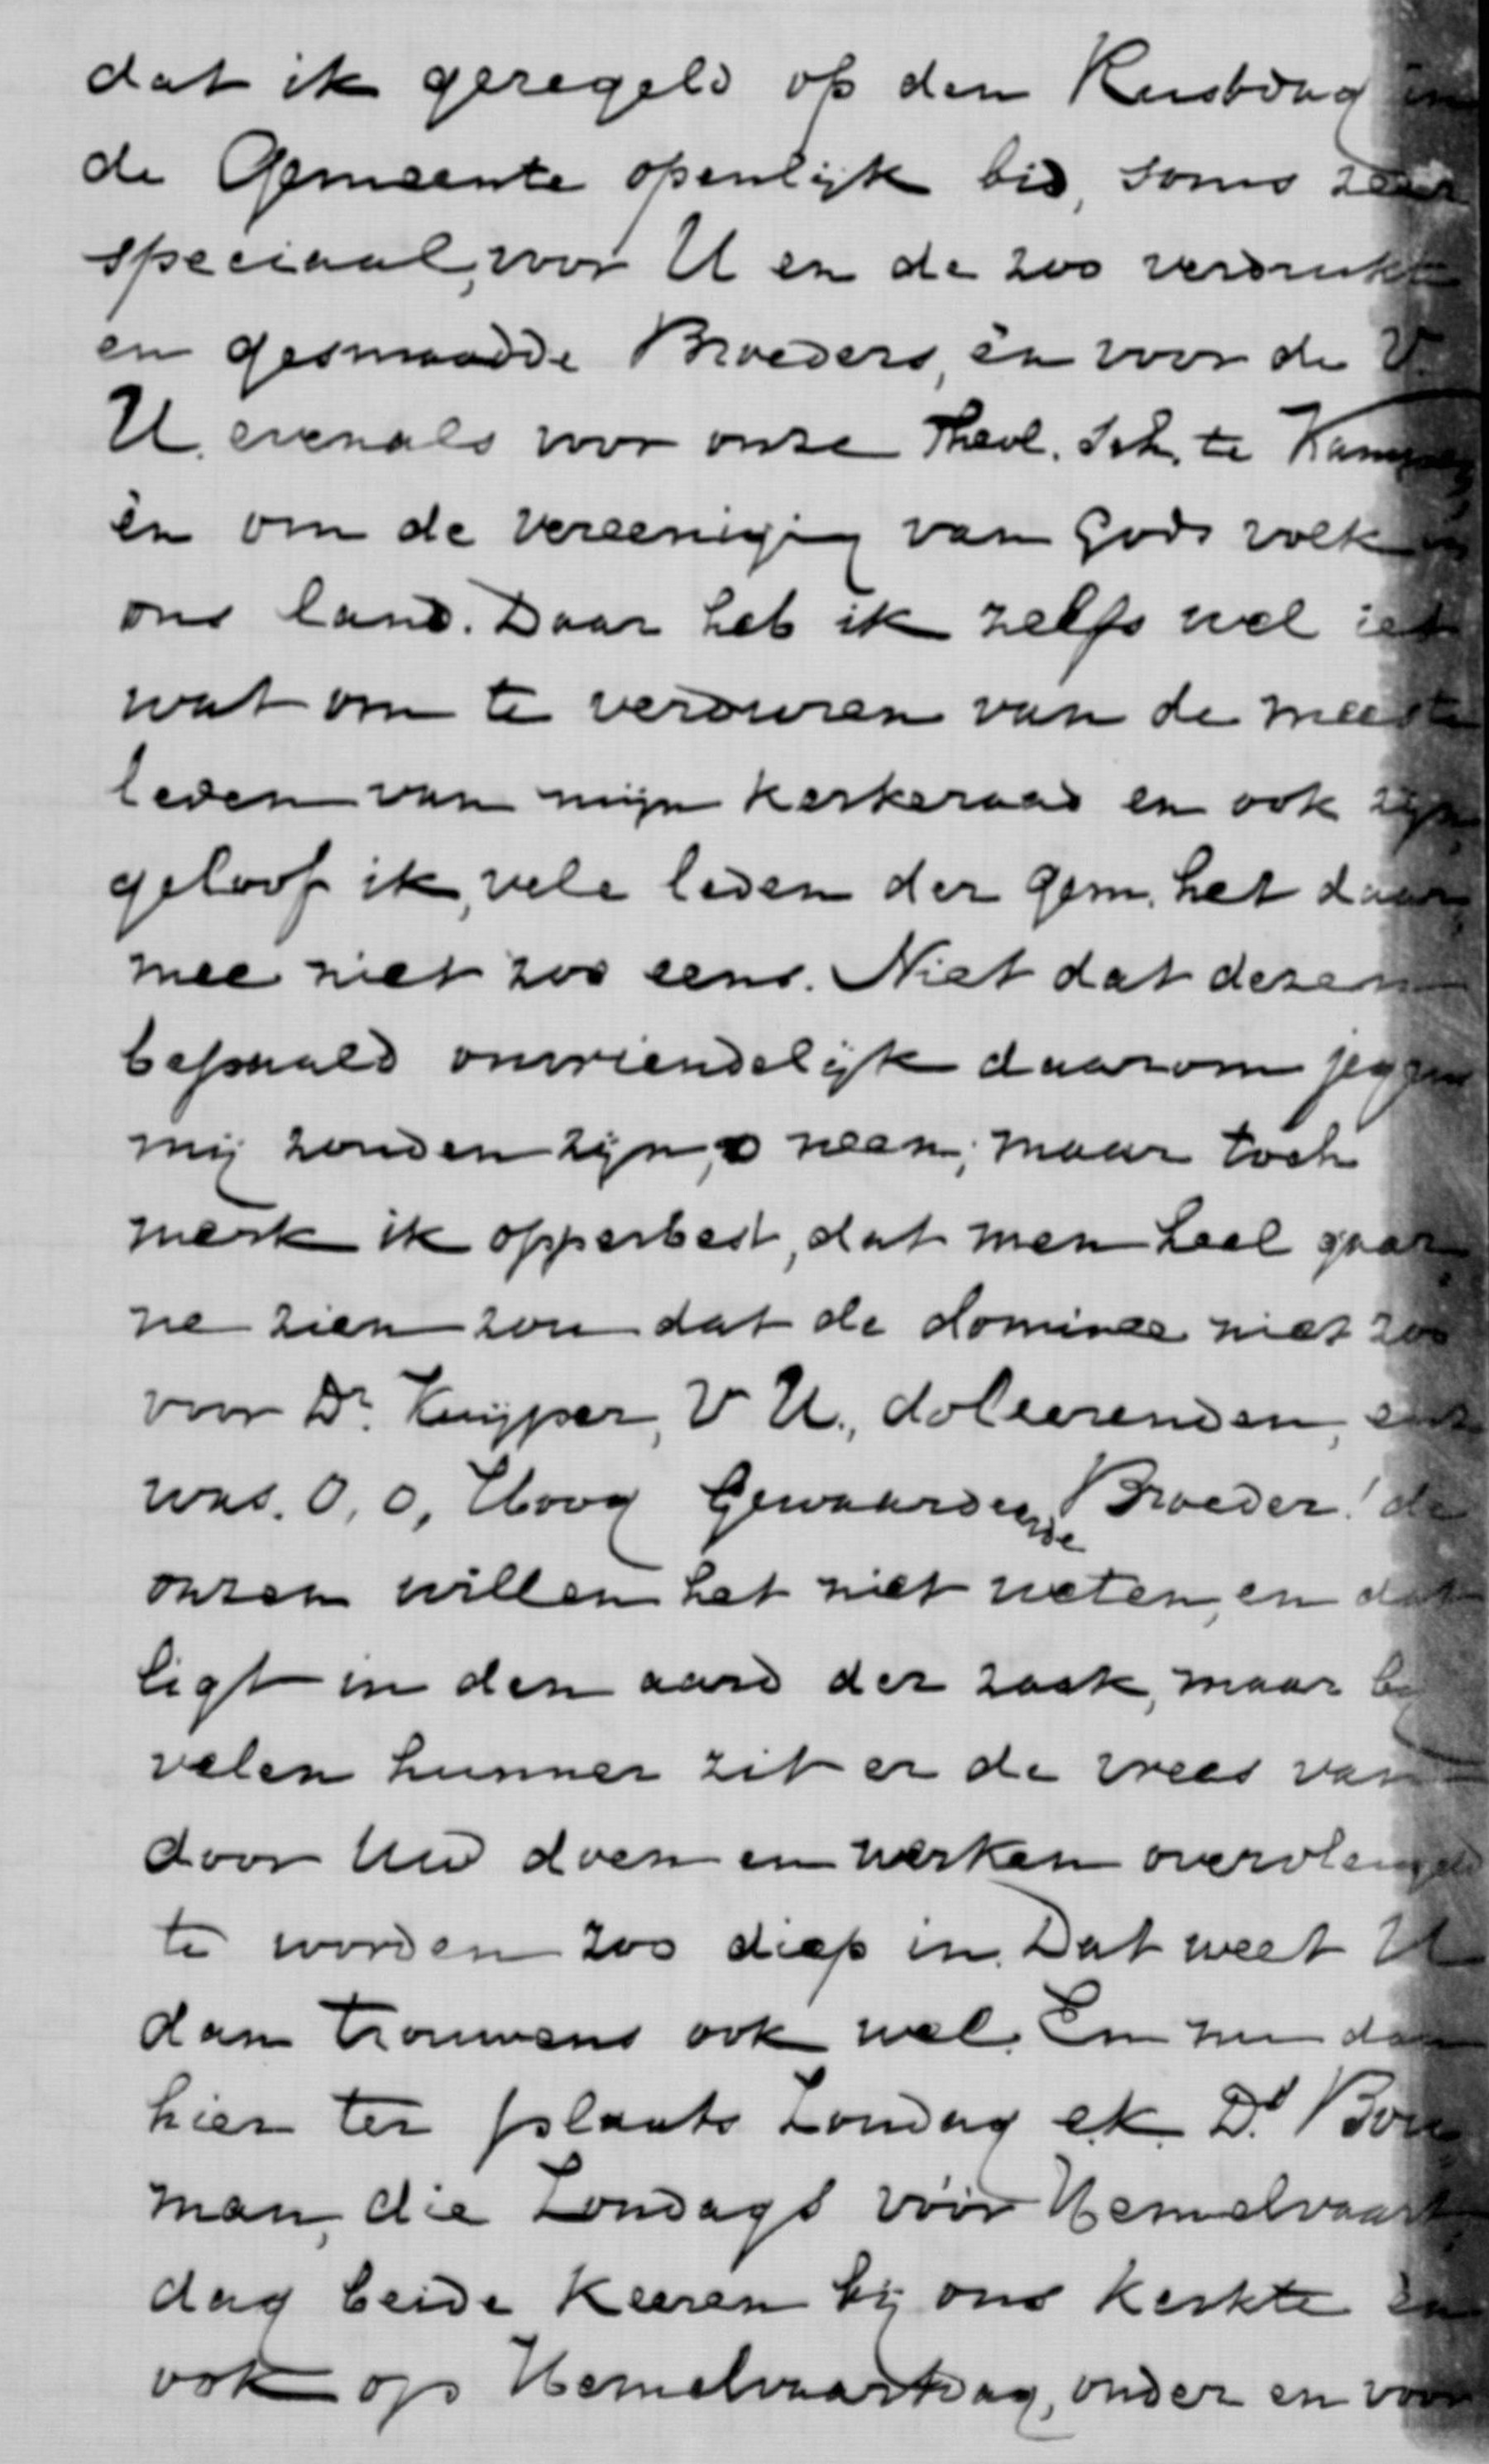 dat ik geregeld op den Rustdag in
de Gemeente openlijk bid, soms zeer
speciaal, voor U en de zoo verdrukte
en gesmaadde Broeders, èn voor de V.
U. evenals voor onze Theol. Sch. te Kampen
èn om de vereeniging van Gods volk in
ons land. Daar heb ik zelfs wel iet
wat om te verduren van de meeste
leden van mijn kerkeraad en ook zijn,
geloof ik, vele leden der gem. het daar
mee niet zoo eens. Niet dat dezen
bepaald onvriendelijk daarom jegens
mij zouden zijn, o neen; maar toch
merk ik opperbest, dat men heel gaar
ne zien zou dat de dominee niet zoo
voor Dr. Kuyper, V U., doleerenden, enz
was. O, o, Hoog Gewaardeerde Broeder! de
onzen willen het niet weten, en dat
ligt in den aard der zaak, maar bij
velen hunner zit er de vrees van
door Uw doen en werken overvleugeld
te worden zoo diep in. Dat weet U
dan trouwens ook wel. En nu dan
hier ter plaats Zondag e.k. Ds Bou
man, die Zondags vóór Hemelvaart
dag beide keeren bij ons kerkte en
ook op Hemelvaartsdag, onder en voor